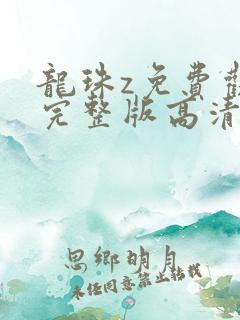 龍珠z免費
完整版高清
思鄉明月
未经同意禁止转载